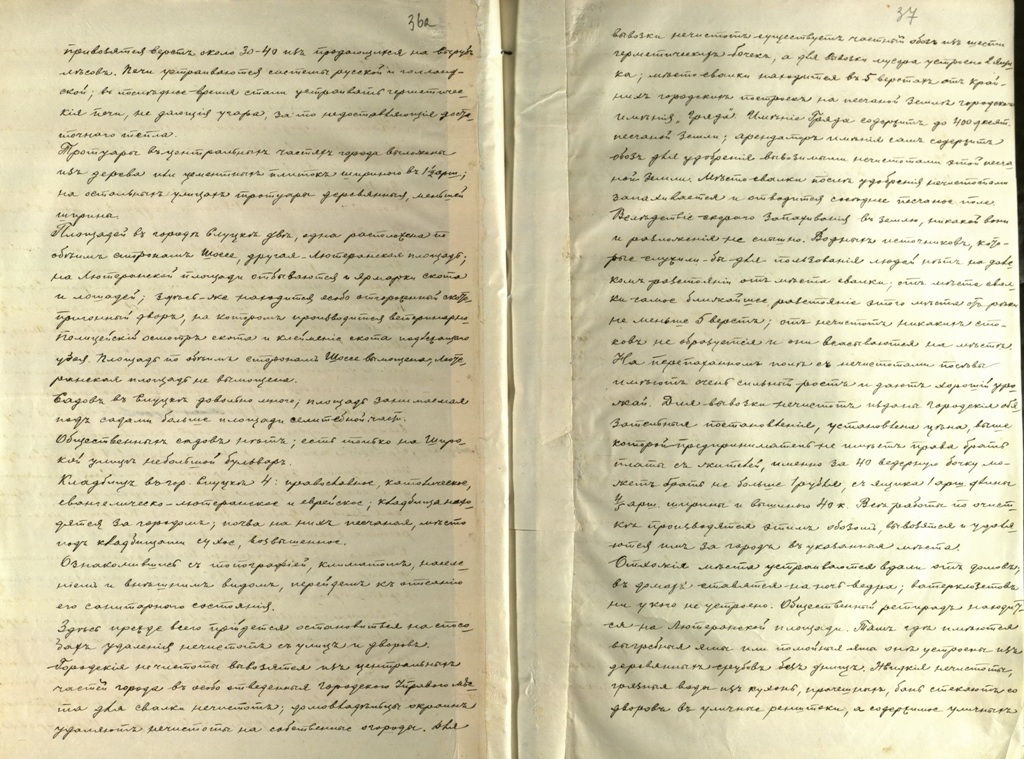 36а
привозятся верстъ около 30-40 изъ продающихся на вырубъ
лѣсовъ. Печи устраиваются системы русской и голланд-
ской; въ послѣднее время стали устраивать герметичес-
кія печи, не дающія угара, за то недоставляющія доста-
точнаго тепла.
Тротуары въ центральныхъ частяхъ города выложены
изъ дерева или цементныхъ плитокъ шириною въ 1½ арш;
на остальныхъ улицахъ тротуары деревянные, меньшей
ширины.
Площадей въ городѣ Слуцкѣ двѣ, одна расположена по
обѣимъ сторонамъ Шоссе, другая-Лютеранская площадь;
на Лютеранской площади отбываются и ярмарки скота
и лошадей; здѣсь-же находится особо отгороженный ското-
пригонный дворъ, на которомъ производится ветеринарно-
полицейскій осмотръ скота и клейменіе скота
уѣзда. Площадь по обѣимъ сторонамъ Шоссе вымощена, Люте-
ранская площадь не вымощена.
Садовъ въ Слуцкѣ довольно много; площадь занимаемая
подъ садами больше площади селитебной части.
Общественныхъ садовъ нѣтъ; есть только на Широ-
кой улицѣ небольшой бульваръ.
Кладбищъ въ гор. Слуцкѣ 4: православное, католическое,
евангелическо-лютеранское и еврейское; кладбища нахо-
дятся за городомъ; почва на нихъ песчаная, мѣсто
подъ кладбищами сухое, возвышенное.
Ознакомившись съ топографіей, климатомъ, населе-
ніемъ и внѣшнимъ видомъ, перейдемъ къ описанію
его санитарнаго состоянія.
Здѣсь прежде всего прійдется остановиться на спосо-
бахъ удаленія нечистотъ съ улицъ и дворовъ.
Городскія нечистоты вывозятся изъ центральныхъ
частей города въ особо отведенныя Городскою Управою мѣс-
та для свалки нечистотъ; домовладѣльцы окраинъ
удаляютъ нечистоты на собственные огороды. Для
37
вывозки нечистотъ существуетъ частный обозъ изъ шести
герметическихъ бочекъ, а для вывозки мусора устроено 2 ящи-
ка; мѣсто свалки находится въ 5 верстахъ отъ край-
нихъ городскихъ построекъ на песчаной землѣ городского
имѣнія „Гряда". Имѣніе Гряда содержитъ до 400 десят.
песчаной земли; арендаторъ имѣнія самъ содержитъ
обозъ для удобренія вывозимыми нечистотами этой песча-
ной земли. Мѣсто свалки послѣ удобренія нечистотами
запахивается и отводится сосѣднее песчаное поле.
Вслѣдствіе скораго запахиванія въ землю, никакой вони
и разложенія не слышно. Водныхъ источниковъ, кото-
рые служили-бы для пользованія людей нѣтъ на дале-
комъ разстояніи отъ мѣста свалки; отъ мѣста свал-
ки самое ближайшее разстояніе этого мѣста отъ рѣки
не меньше 5 верстъ; отъ нечистотъ никакихъ сто-
ковъ не образуется и они всасываются на мѣстѣ.
На перепаханномъ полѣ съ нечистотами посѣвы
имѣютъ очень сильный ростъ и даютъ хорошій уро-
жай. Для вывозки нечистотъ изданы городскія обя-
зательныя постановленія, установлена цѣна, выше
которой предприниматель не имѣетъ права брать
платы съ жителей, именно за 40 ведерную бочку мо-
жетъ брать не больше 1 рубля; съ ящика 1 арш. длины
½ арш. ширины и вышиною 40 к. Всѣ работы по очист-
кѣ производятся этимъ обозомъ, вывозятся и удаля-
ются имъ за городъ въ указанныя мѣста.
Отхожія мѣста устраиваются вдали отъ домовъ,
въ домахъ ставятся на ночь ведра; ватерклозетовъ
ни у кого не устроено. Общественный ретирадъ находит-
ся на Лютеранской площади. Тамъ гдѣ имѣются
выгребныя ямы или помойныя ямы онѣ устроены изъ
деревянныхъ срубовъ безъ днищъ. Жидкія нечистоты,
грязныя воды изъ кухонь, прачешныхъ, бань стекаютъ со
дворовъ въ уличные ренштоки, а содержимое уличныхъ